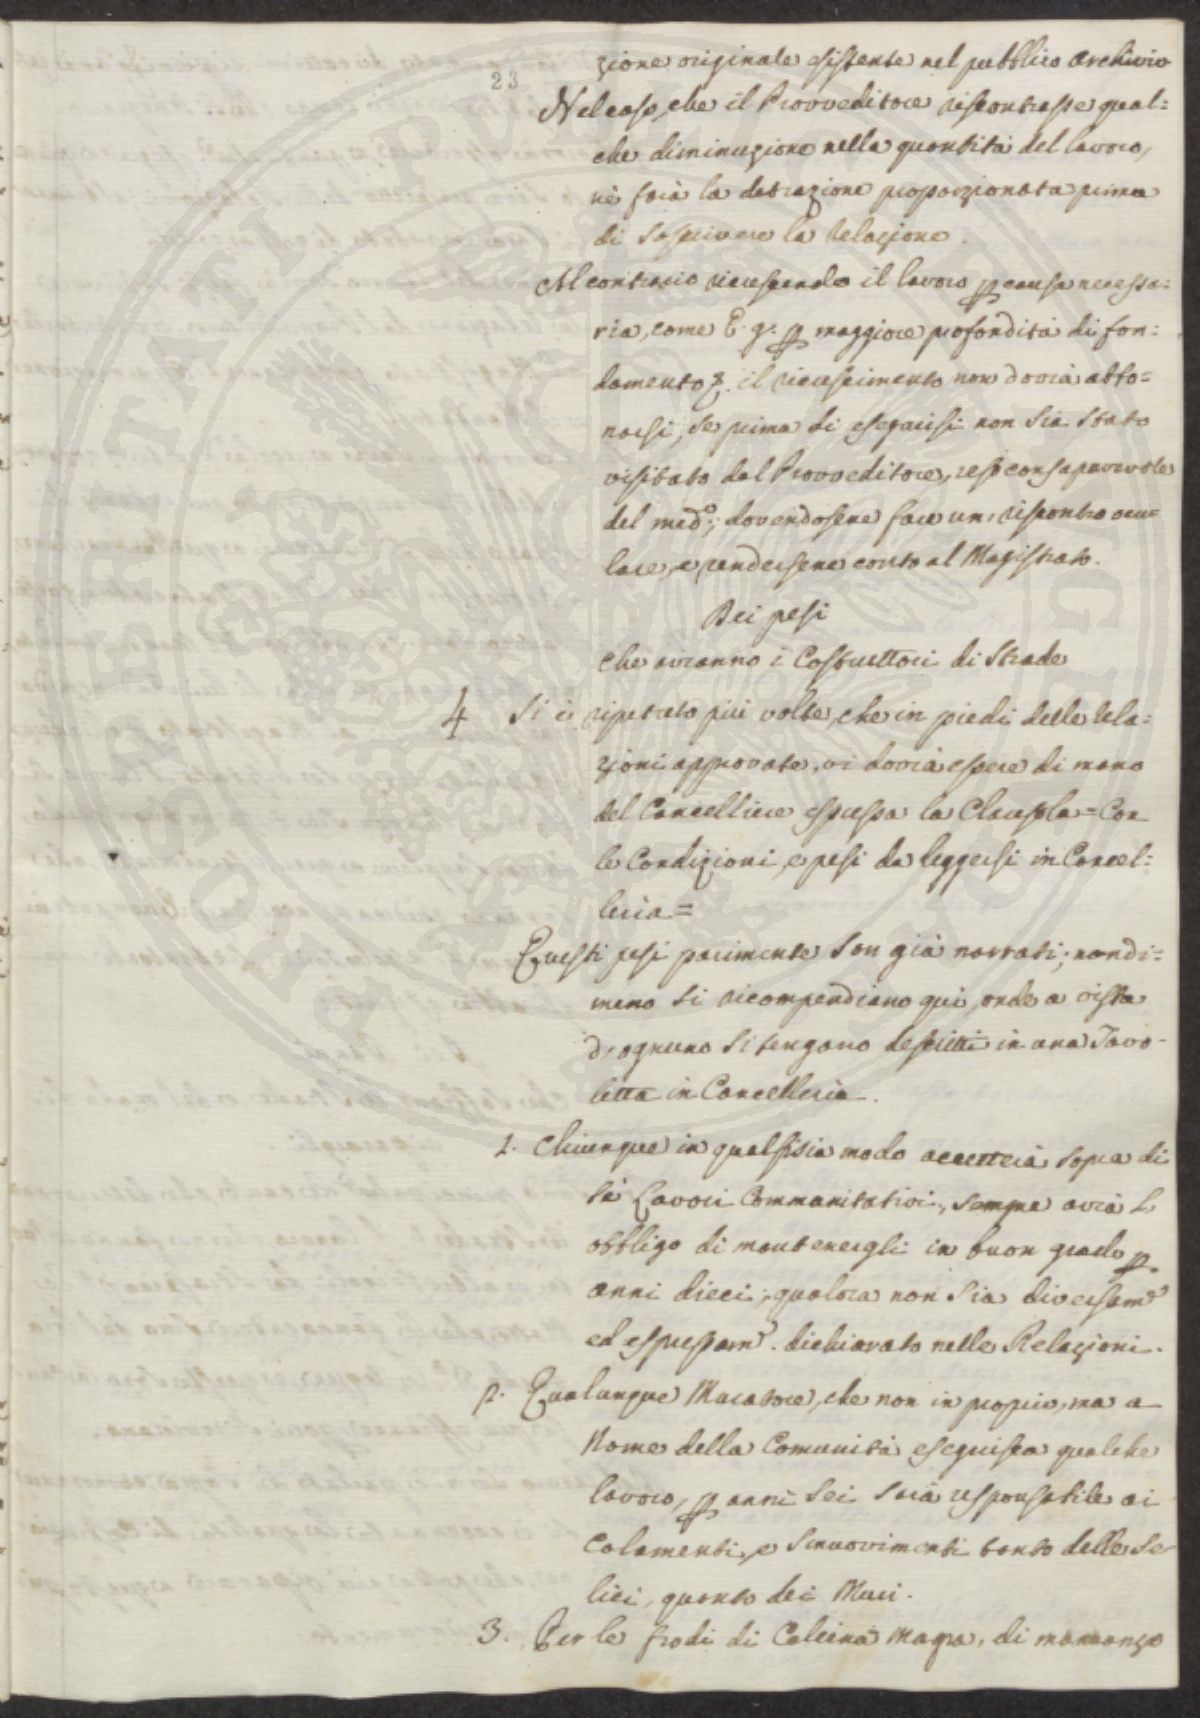 23
zione originale esistente nel pubblico archivio
Nel caso, che il Provveditore riscontrasse qual=
che diminuzione nella quantità del lavoro,
nè farà la detrazione proporzionata prima
di soscrivere la Relazione.
Al contrario riescendo il lavoro p causa necessa:
ria, come E. g. p maggiore profondità di fon:
damento &. il riescimento non dovrà abbo=
narsi, se prima di eseguirsi non sia stato
visitato dal Provveditore, reso consapavevole
del med.o; dovendosene fare un, riscontro ocu=
lare, e rendersene conto al Magistrato.
Dei pesi
che avranno i Costruttori di Strade
4 Si è ripetuto più volte, che in piedi delle Rela:
zioni approvate, vi dovrà essere di mano
del Cancelliere espressa la Clausola = Con
le Condizioni, e pesi da leggersi in Cancel:
leria =
Questi pesi parimente son già narrati; nondi=
meno si ricompendiano qui, onde a vista
d, ognuno si tengano descritti in una Tavo-
letta in Cancelleria.
1. Chiunque in qualsisia modo accetterà sopra di
sè Lavori Communitativi, sempre avrà l,
obbligo di mantenergli in buon grado p
anni dieci, qualora non sia diversam.e
ed espressam.e dichiarato nelle Relazioni.
2. Qualunque Muratore, che non in proprio, ma a
Nome della Comunità eseguisca qualche
lavoro, p anni sei sarà responsabile ai
Calamenti, e smuovimenti tanto delle Se-
lici, quanto dei Muri.
3. Per le frodi di Calcina magra, di mancanza